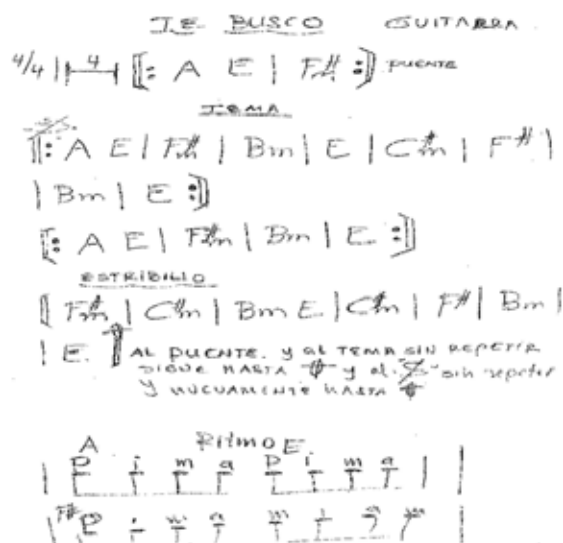 TE BUSCO GUITARRA
4/4 | 4 | [: A E | F#m :] PUENTE
TEMA
[: A E | F#m | Bm | E | C#m | F# |
| Bm | E :]
[: A E | F#m | Bm | E :]
ESTRIBILLO
[ F#m | C#m | Bm E | C#m | F# | Bm |
| E. AL PUENTE. y al TEMA SIN REPETIR
SIGUE HASTA y al sin repetir
Y NUEVAMENTE HASTA
A Ritmo E
| P i m a P i m a | |
| F# P i m a m i a m